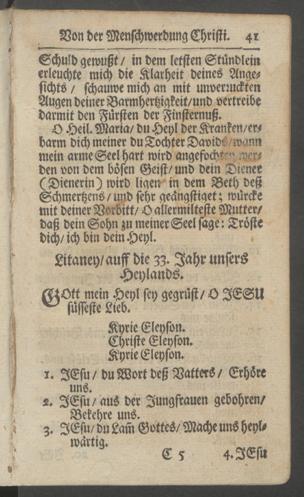 Von der Menschwerdung Christi. 41
Schuld gewußt / in dem letsten Stündlein
erleuchte mich die Klarheit deines Ange-
sichts / schauwe mich an mit unverruckten
Augen deiner Barmhertzigkeit / und vertreibe
darmit den Fürsten der Finsternuß.
O Heil. Maria / du Heyl der Kranken / er-
barm dich meiner du Tochter Davids / wann
mein arme Seel hart wird angefochten wer-
den von dem bösen Geist / und dein Diener
(Dienerin) wird ligen in dem Beth deß
Schmertzens / und sehr geängstiget; würcke
mit deiner Vorbitt / O allermilteste Mutter /
daß dein Sohn zu meiner Seel sage: Tröste
dich / ich bin dein Heyl.
Litaney / auff die 33. Jahr unsers
Heylands.
GOtt mein Heyl sey gegrüst / O JESU
süsseste Lieb.
Kyrie Eleyson.
Christe Eleyson.
Kyrie Eleyson.
1. JEsu / du Wort deß Vatters / Erhöre
uns.
2. JEsu / aus der Jungfrauen gebohren /
Bekehre uns.
3. JEsu / du Lam̃ Gottes / Mache uns heyl-
wärtig.
C 5 4. JEsu